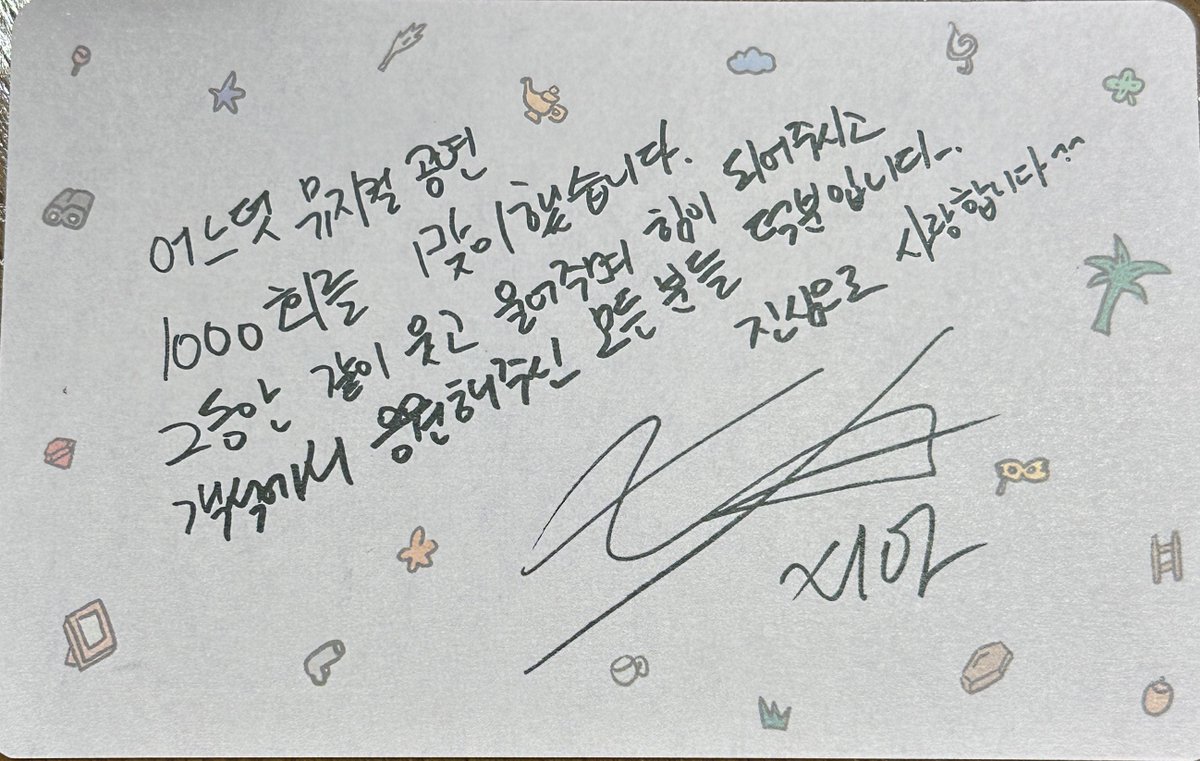 어느덧 뮤지컬 공연
1000회를 맞이했습니다.
그동안 같이 웃고 울어주며 힘이 되어주시고
객석에서 응원해주신 모든 분들 덕분입니다~.
진심으로 사랑합니다^^
XIA